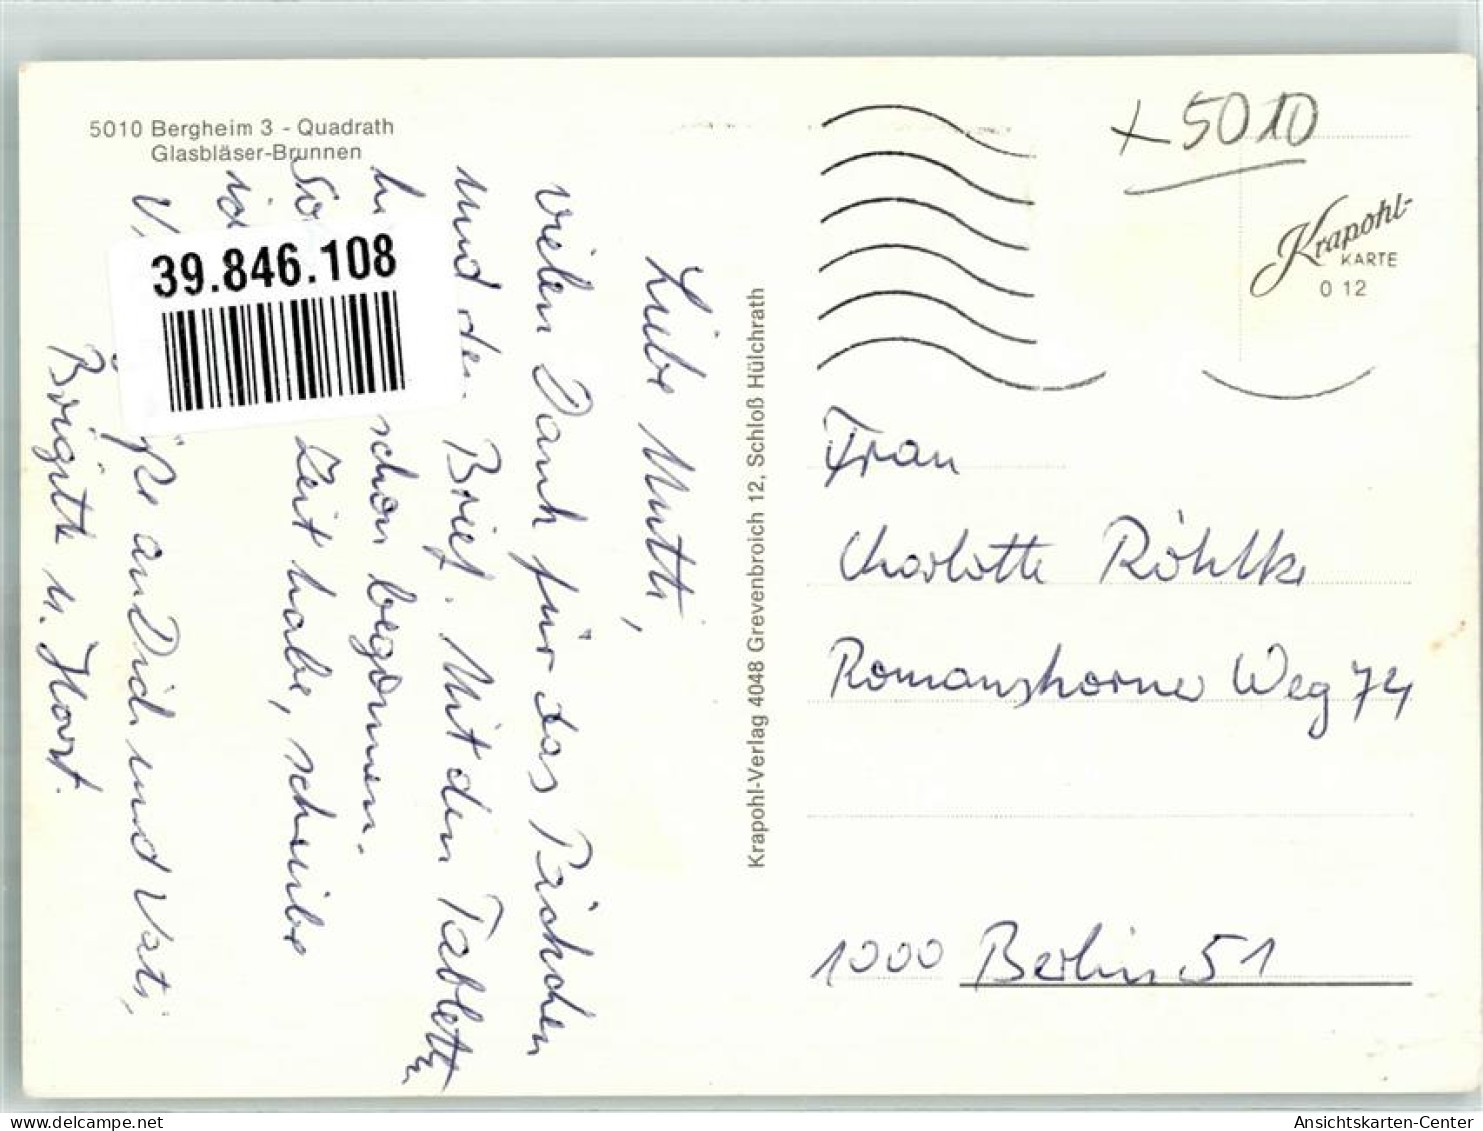 5010 Bergheim 3 - Quadrath
Glasbläser-Brunnen
39.846.108
Liebe Mutti,
vielen Dank für das Päckchen
und den Brief. Mit den Tabletten
schon begonnen.
Zeit habe, schreibe
an Dich und Vati,
Brigitte u. Horst.
Krapohl-Verlag 4048 Grevenbroich 12, Schloß Hülchrath
5010
Krapohl-
KARTE
O 12
Frau
Charlotte Röhlke
Romanshorner Weg 74
1000 Berlin 51
delcampe.net
Ansichtskarten-Center